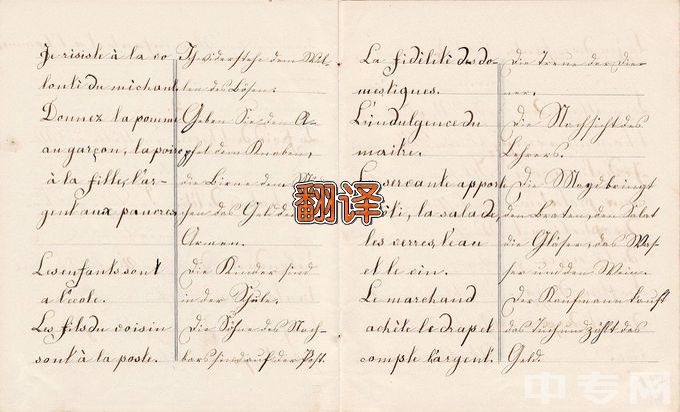 Je résiste à la vo-
lonté du méchant.
Donnez la pomme
au garçon, la poire
à la fille, l'ar-
gent aux pauvres
Les enfants sont
à l'école.
Les fils du voisin
sont à la poste.
Ich widerstehe dem Wil-
len des Bösen.
Geben Sie den A-
pfel dem Knaben,
die Birne dem
das Geld den
Armen.
Die Kinder sind
in der Schule.
Die Söhne des Nach-
bars sind auf der Post.
翻译
La fidélité des do-
mestiques.
L'indulgence du
maître.
La servante apporte
la salade,
les verres, l'eau
et le vin.
Le marchand
achète le drap et
compte l'argent.
Die Treue der Die-
ner.
Die Nachsicht des
Lehrers.
Die Magd bringt
den Braten, den Salat
die Gläser, das Was-
ser und den Wein.
Der Kaufmann kauft
das Tuch und zählt das
Geld.
中专网